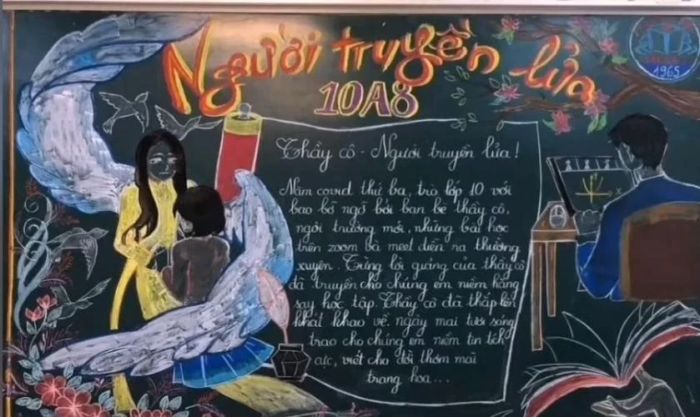 Người truyền lửa
10A8
1965
Thầy cô - Người truyền lửa!
Năm covid thứ ba, trò lớp 10 với
bao bỡ ngỡ bởi bạn bè thầy cô,
ngôi trường mới, những bài học
trên zoom và meet diễn ra thường
xuyên. Từng lời giảng của thầy cô
đã truyền cho chúng em niềm hăng
say học tập. Thầy cô đã thắp lên
khát khao về ngày mai tươi sáng
trao cho chúng em niềm tin tích
cực, viết cho đời thơm mãi
trang hoa...